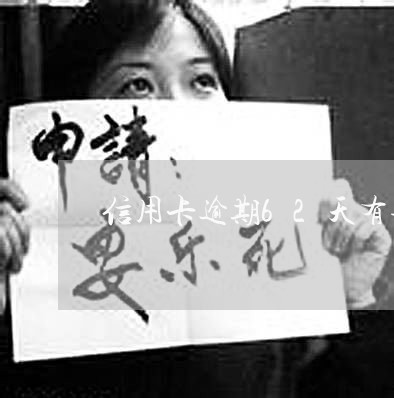 申請：
信用卡逾期62天有
安乐死